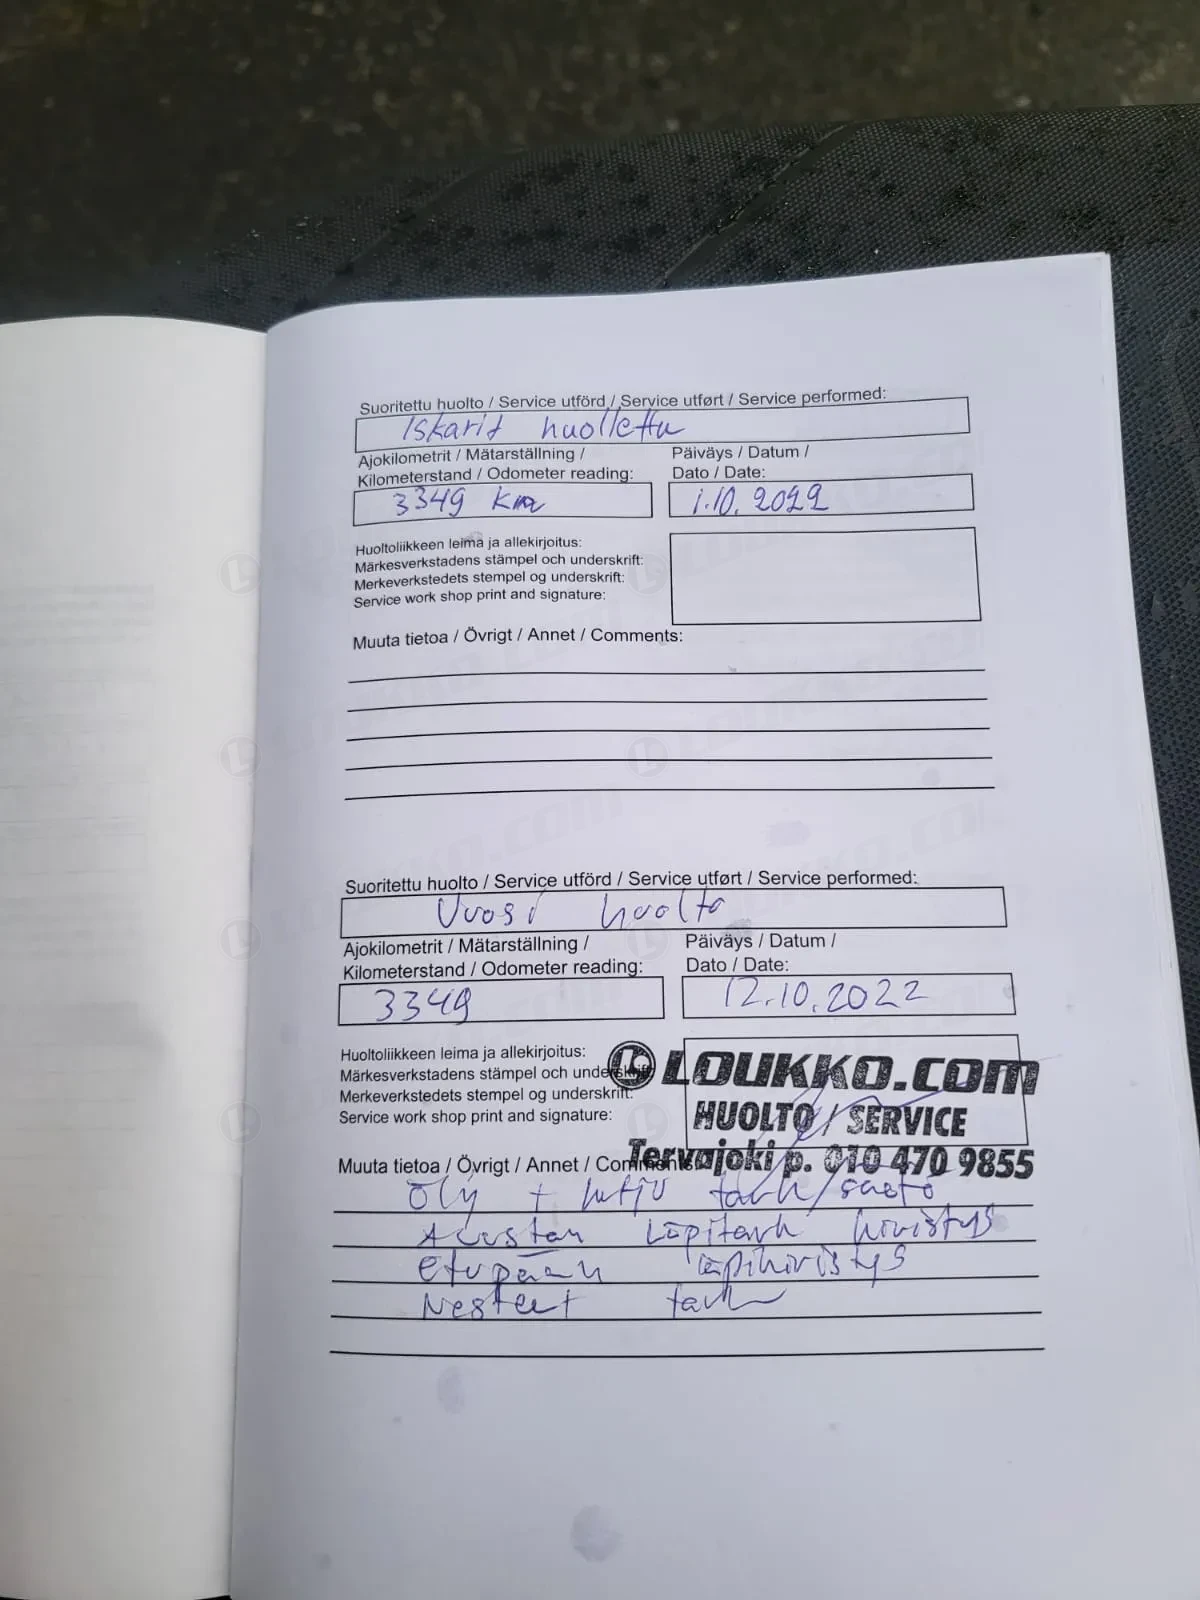 Suoritettu huolto / Service utförd / Service utført / Service performed:
Iskarit huollettu
Ajokilometrit / Mätarställning /
Kilometerstand / Odometer reading:
Päiväys / Datum /
Dato / Date:
3349 km
1.10.2022
Huoltoliikkeen leima ja allekirjoitus:
Märkesverkstadens stämpel och underskrift:
Merkeverkstedets stempel og underskrift:
Service work shop print and signature:
Muuta tietoa / Övrigt / Annet / Comments:
Suoritettu huolto / Service utförd / Service utført / Service performed:
Vuosi huolto
Ajokilometrit / Mätarställning /
Kilometerstand / Odometer reading:
Päiväys / Datum /
Dato / Date:
3349
12.10.2022
Huoltoliikkeen leima ja allekirjoitus:
Märkesverkstadens stämpel och underskrift:
Merkeverkstedets stempel og underskrift:
Service work shop print and signature:
LOUKKO.com
HUOLTO / SERVICE
Tervajoki p. 010 470 9855
Muuta tietoa / Övrigt / Annet / Comments:
Öljy + ketju tark/säätö
Alustan läpitark kiristys
etupään läpikiristys
Nesteet tark